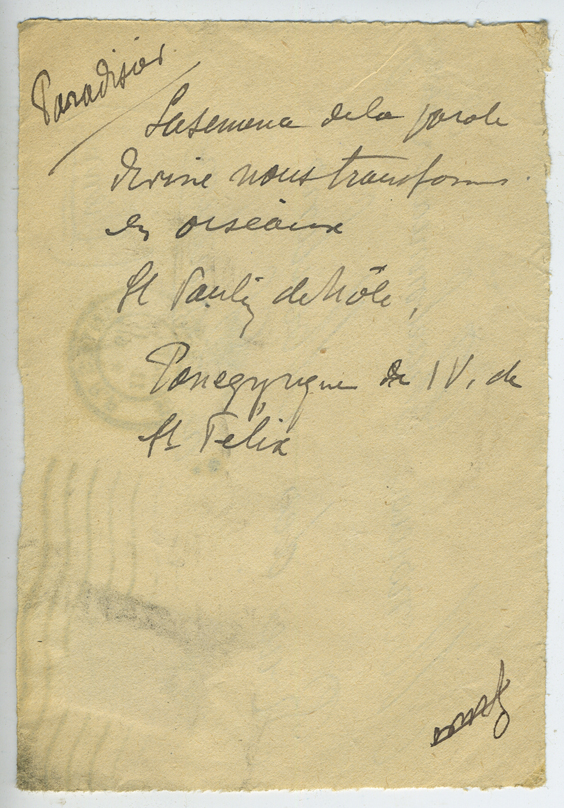 Paradisier
La semence de la parole
divine nous transforme
en oiseaux
St Paulin de Nôle,
Panegyrique de IV, de
St Felix